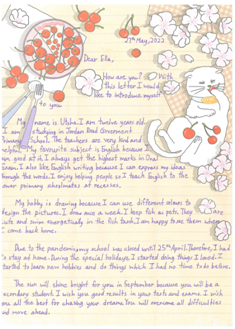 21st May, 2022
Dear Ella,
How are you? With
this letter I would
like to introduce myself
to you.
My name is Utsha. I am twelve years old.
I am studying in Jordan Road Government
Primary School. The teachers are very kind and
helpful. My favourite subject is English because I
am good at it. I always get the highest marks in Oral
Exam. I also like English writing because I can express my ideas
through the words. I enjoy helping people so I teach English to the
lower primary schoolmates at recesses.
My hobby is drawing because I can use different colours to
design the pictures. I draw once a week. I keep fish as pets. They are
cute and swim energetically in the fish tank. I am happy to see them when
I come back home.
Due to the pandemic, my school was closed until 25th April. Therefore, I had
to stay at home. During the special holidays, I started doing things I loved. I
started to learn new hobbies and do things which I had no time to do before.
The sun will shine bright for you in September because you will be a
secondary student. I wish you good results in your tests and exams. I wish
you all the best for chasing your dreams. You will overcome all difficulties
and move ahead.